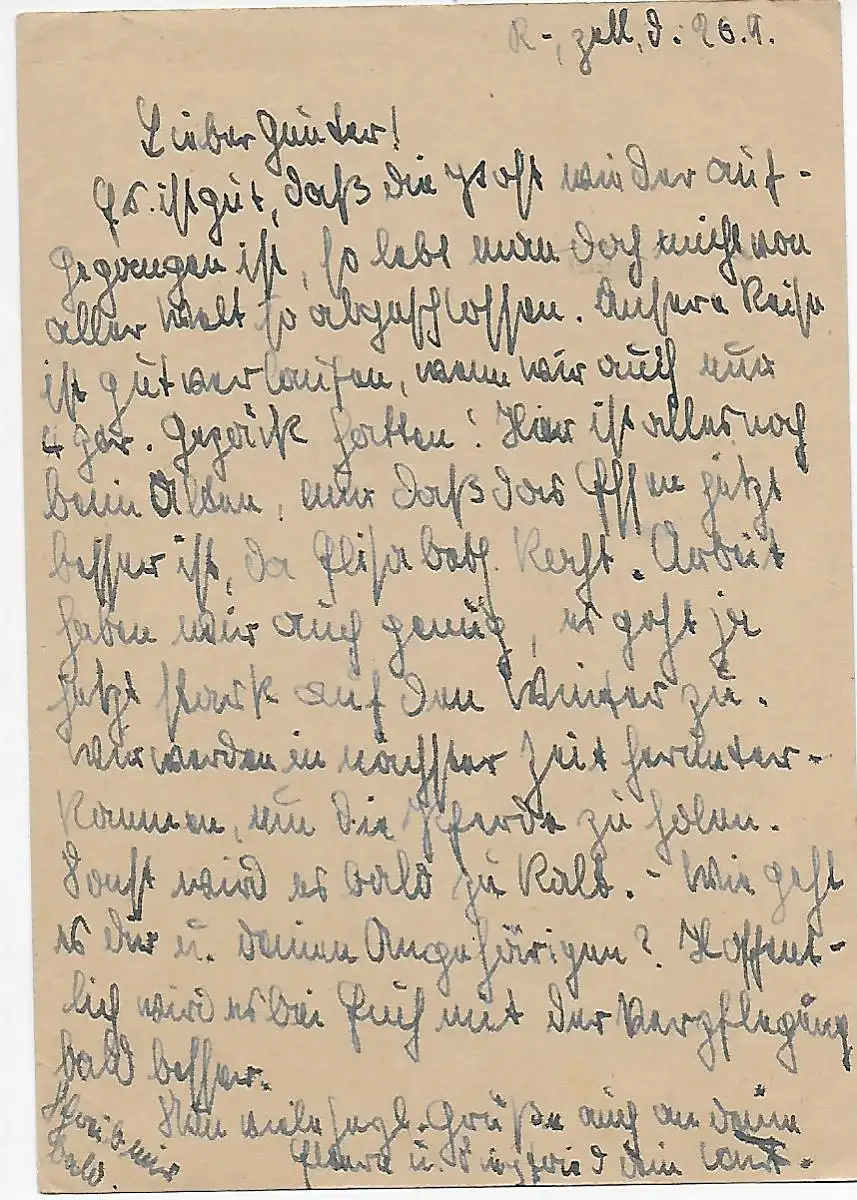 R-, zell, d. 26.9.
Lieber Günter!
Es ist gut, daß die Post wieder auf-
gegangen ist, so lebt man doch nicht von
aller Welt so abgeschlossen. Unsere Reise
ist gut verlaufen, wenn wir auch nur
4 Gepäck hatten! Hier ist alles noch
beim Alten, nur daß das Essen jetzt
besser ist, da Elisabeth kocht. Arbeit
haben wir auch genug, es geht ja
jetzt stark auf den Winter zu.
Wir werden in nächster Zeit herunter-
kommen, um die Pferde zu holen.
Sonst wird es bald zu kalt. - Wie geht
es dir u. deinen Angehörigen? Hoffent-
lich wird es bei Euch mit der Verpflegung
bald besser.
Nun viele herzl. Grüße auch an deine
Eltern u. Siegfried dein
Schreib mir
bald.